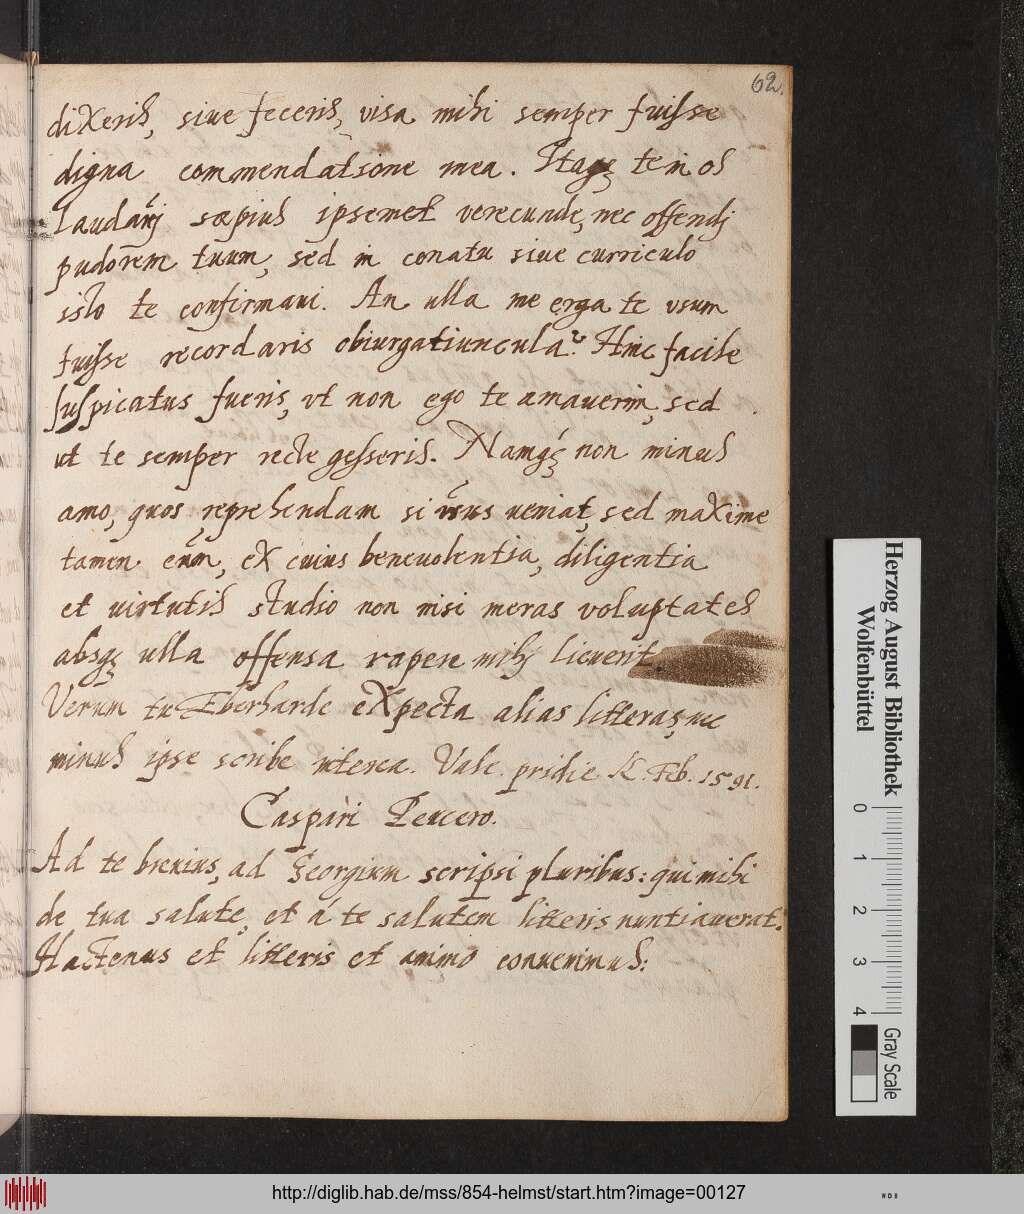 62.
dixeris, siue feceris, visa mihi semper fuisse
digna commendatione mea. Itaqꝫ te in os
laudaui sæpius ipsemet verecunde, nec offendj
pudorem tuum, sed in conatu siue curriculo
isto te confirmaui. An ulla me erga te vsum
fuisse recordaris obiurgatiuncula? Hinc facile
suspicatus fueris, vt non ego te amauerim, sed
ut te semper recte gesseris. Namqꝫ non minus
amo, quos reprehendam si usus ueniat, sed maxime
tamen eum, ex cuius beneuolentia, diligentia
et uirtutis studio non nisi meras voluptates
absqꝫ ulla offensa capere mihj licuerit.
Verum tu Eberharde expecta alias litteras, nec
minus ipse scribe interea. Vale. pridie K. Feb. 1591.
Caspari Peucero.
Ad te breuius, ad Georgium scripsi pluribus: qui mihi
de tua salute, et á te salutem litteris nuntiauerat.
Hactenus et litteris et animo conuenimus:
Herzog August Bibliothek
Wolfenbüttel
0 1 2 3 4
Gray Scale
http://diglib.hab.de/mss/854-helmst/start.htm?image=00127